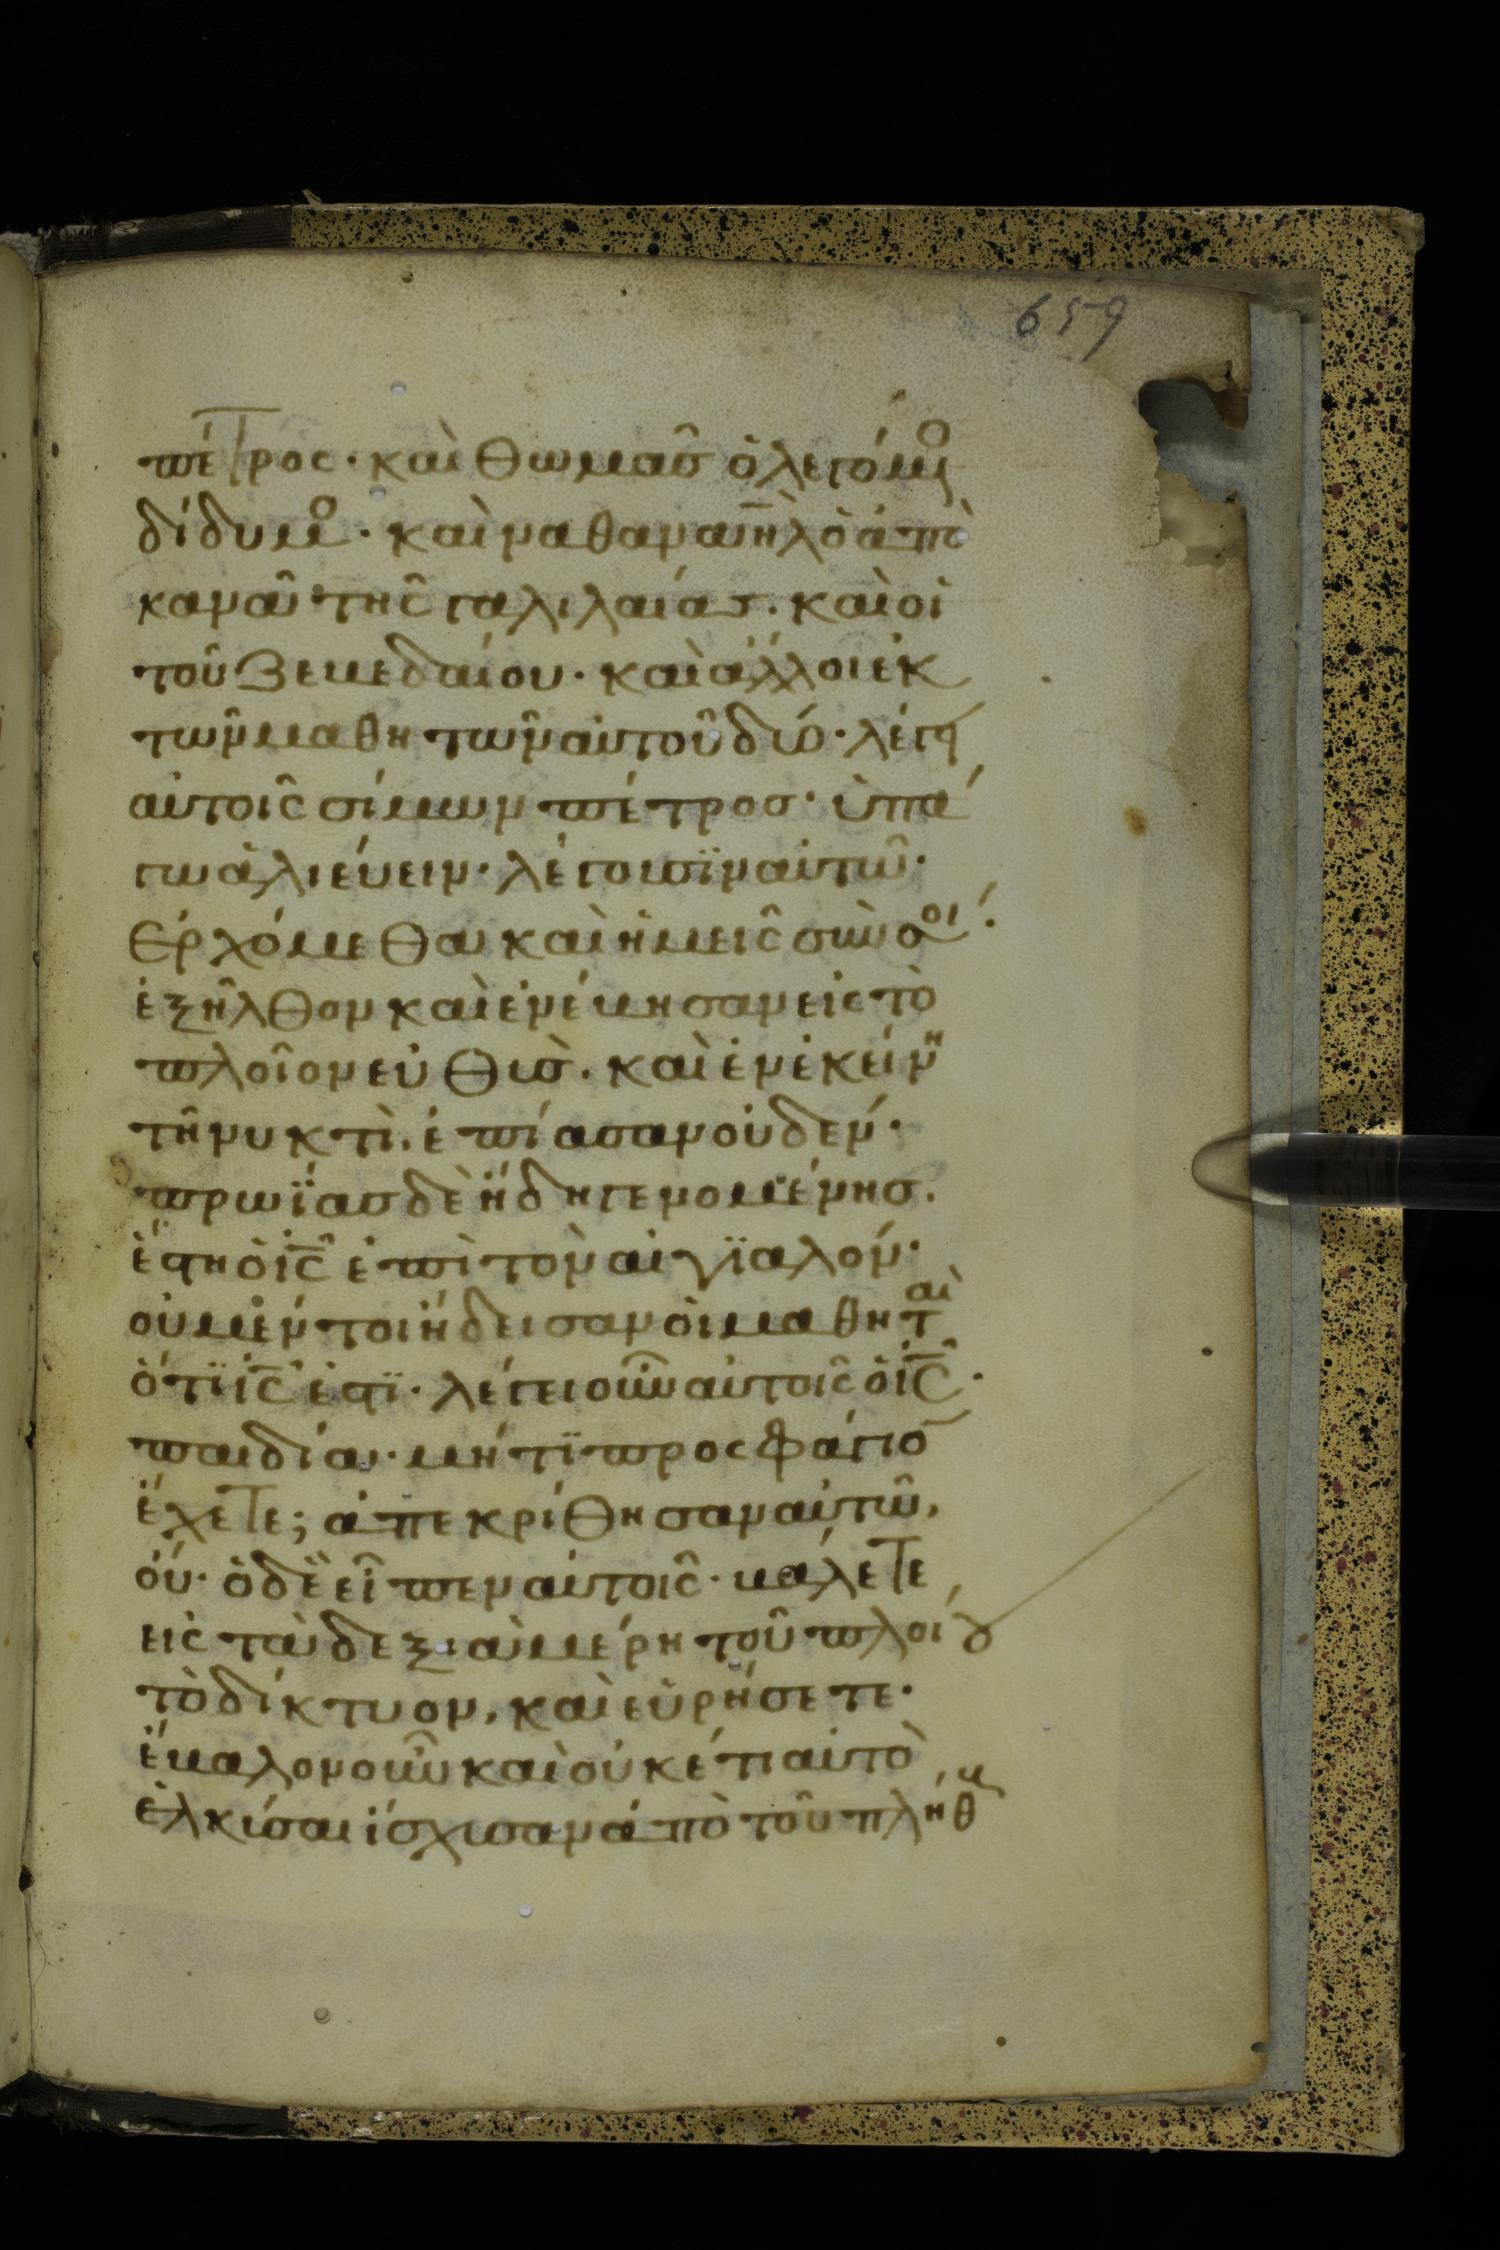 659
πέτρος· καὶ θωμᾶσ ὁ λεγόμ̅ο
δίδυμο· καὶ ναθαναὴλ ὁ ἀπὸ
κανᾶ τῆς γαλιλαίασ. καὶ οἱ
τοῦ ζεβεδαίου· καὶ ἄλλοι ἐκ
τῶν μαθητῶν αὐτοῦ δύο· λέγει
αὐτοῖς σίμων πέτροσ· ὑπά
γω ἁλιεύειν· λέγουσϊν αὐτῶ·
Ἐρχόμεθα καὶ ἡμεῖς σὺν σοί·
ἐξῆλθον καὶ ἐνέβησαν εἰς τὸ
πλοῖον εὐθὺσ. καὶ ἐν ἐκείνη
τῆ νυκτὶ. ἐπίασαν οὐδέν·
πρωΐασ δὲ ἤδη γενομένησ.
ἔστη ὁ ἰς̅ ἐπὶ τὸν αἰγϊαλόν·
οὐ μέν τοι ἤδεισαν οἱ μαθηταὶ
ὅτϊ ἰς̅ ἐστϊ· λέγει οὖν αὐτοῖς ὁ ἰς̅·
παιδία· μή τϊ προσφάγιο̅
ἔχετε; ἀπεκρίθησαν αὐτῶ,
οὔ· ὁ δὲ εἶπεν αὐτοῖς· βάλετε
εἰς τὰ δεξιὰ μέρη τοῦ πλοίου
τὸ δίκτυον, καὶ εὑρήσετε·
ἔβαλον οὖν καὶ οὐκέτι αὐτὸ
ἑλκύσαι ἴσχυσαν ἀπὸ τοῦ πλήθ